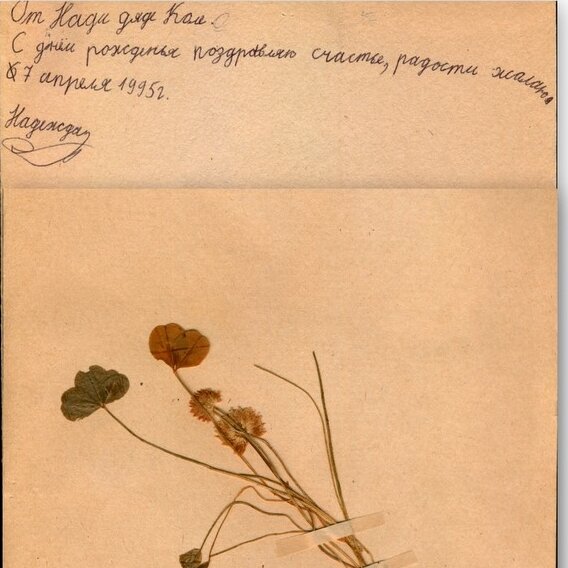 От Нади дяде Коле.
С днём рожденья поздравляю счастье, радости желаю
7 апреля 1995г.
Надежда